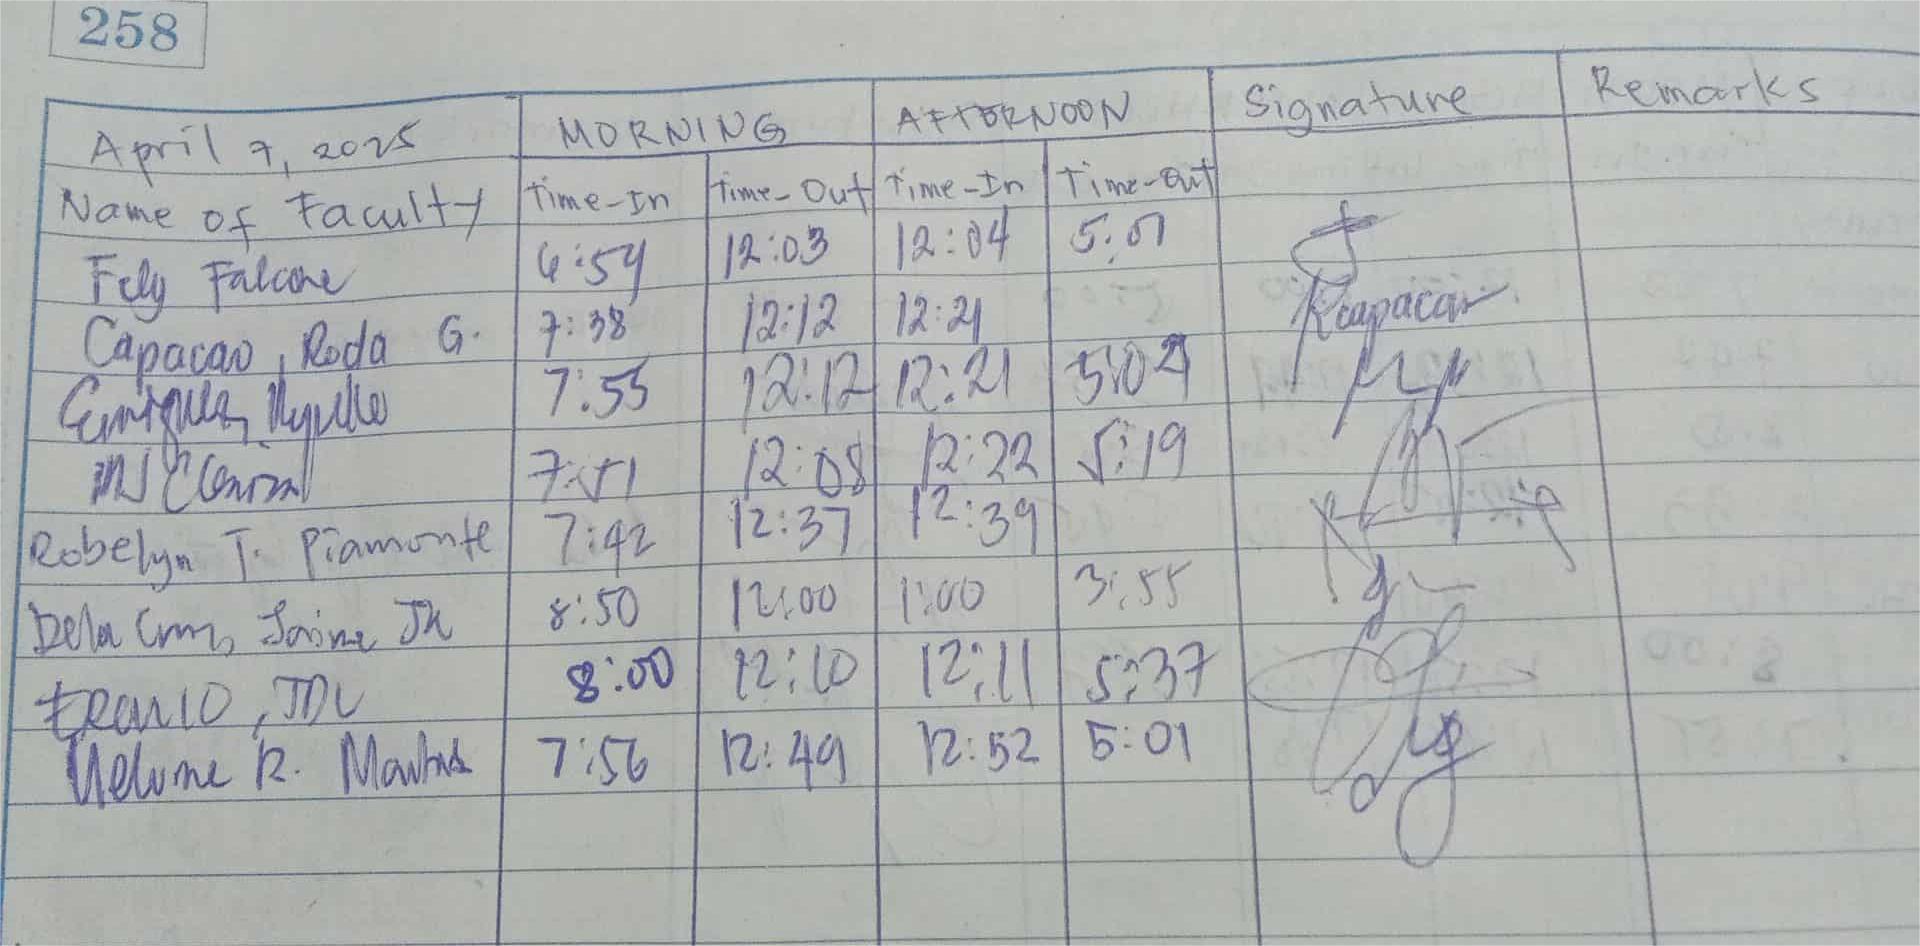 258
April 7, 2025 MORNING AFTERNOON Signature Remarks
Name of Faculty Time-In Time-Out Time-In Time-Out
Fely Falcone 6:54 12:03 12:04 5:01
Capacao, Roda G. 7:38 12:12 12:21 Rcapacao
7:55 12:12 12:21 5:04
7:51 12:08 12:22 5:19
Robelyn T. Piamonte 7:42 12:37 12:39
Dela Cruz, Jaime Jr 8:50 12:00 1:00 3:55
JDL 8:00 12:10 12:11 5:37
R. 7:56 12:49 12:52 5:01